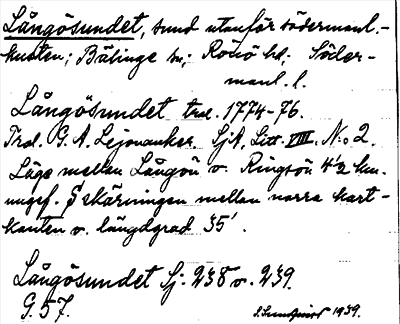 Långösundet, sund utanför södermanl.-
kusten; Bälinge sn; Rönö hd; Söder-
manl. l.
Långösundet trol. 1774-76.
Trol. G. A. Lejonanker. SjA, Litt. VIII. N:o 2.
Läge mellan Långön o. Ringsön 4½ km.
ungef. S skärningen mellan norra kart-
kanten o. längdgrad 35'.
Långösundet Sj: 238 o. 239.
G. 57.
1939.